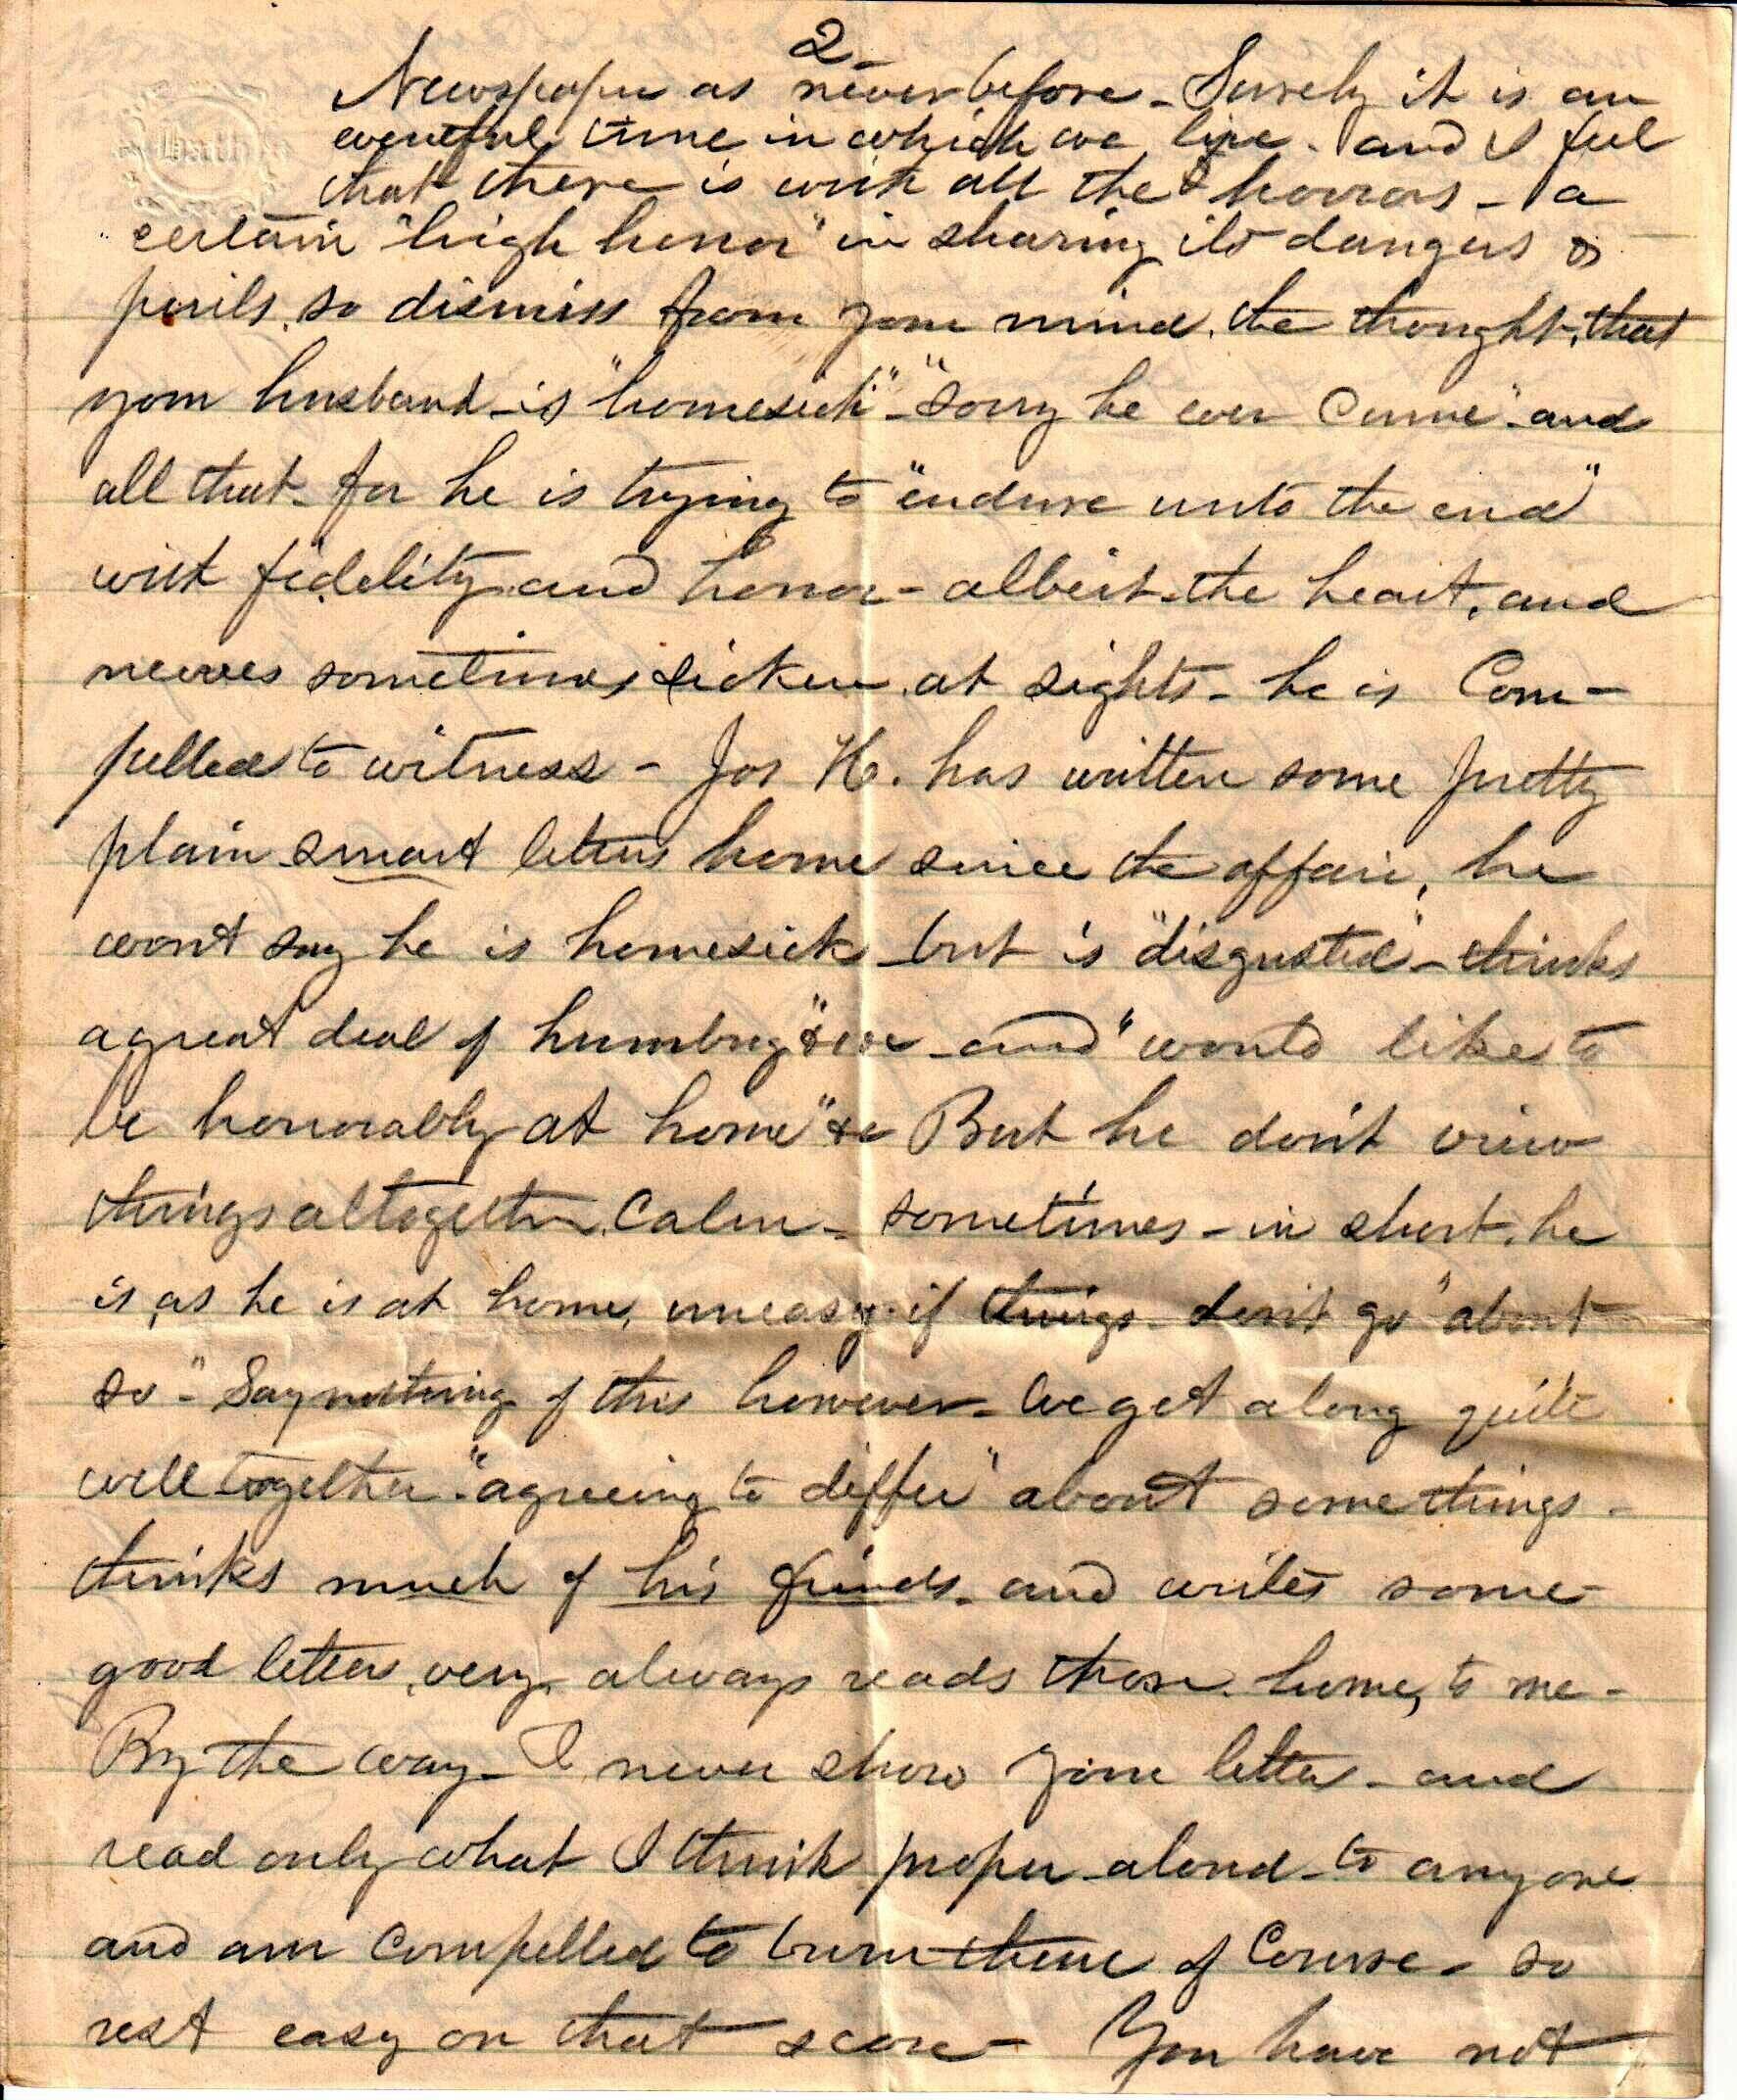 2
Newspaper as never before - Surely it is an
Bath
eventful time in which we live - and I feel
that there is with all the horrors - a
certain "high honor" in sharing its dangers &
perils, so dismiss from your mind, the thought, that
your husband - is "homesick" - "sorry he ever came" - and
all that - for he is trying to "endure unto the end"
with fidelity and honor - albeit the heart, and
nerves sometimes sicken at sights - he is Com-
pelled to witness - Jos H. has written some pretty
plain smart letters home since the affair, he
wont say he is homesick but is "disgusted" - thinks
a great deal of humbug" &c &c - and "would like to
be honorably at home" &c But he don't view
things altogether Calm - sometimes - in short, he
is, as he is at home, uneasy if things don't go "about
so" - Say nothing of this however - We get along quite
well together - "agreeing to differ" about some things -
thinks much of his friends - and writes some
good letters, very, always reads those home, to me -
By the way - I never show your letters - and
read only what I think proper aloud - to any one
and am Compelled to burn them of Course - so
rest easy on that score - You have not